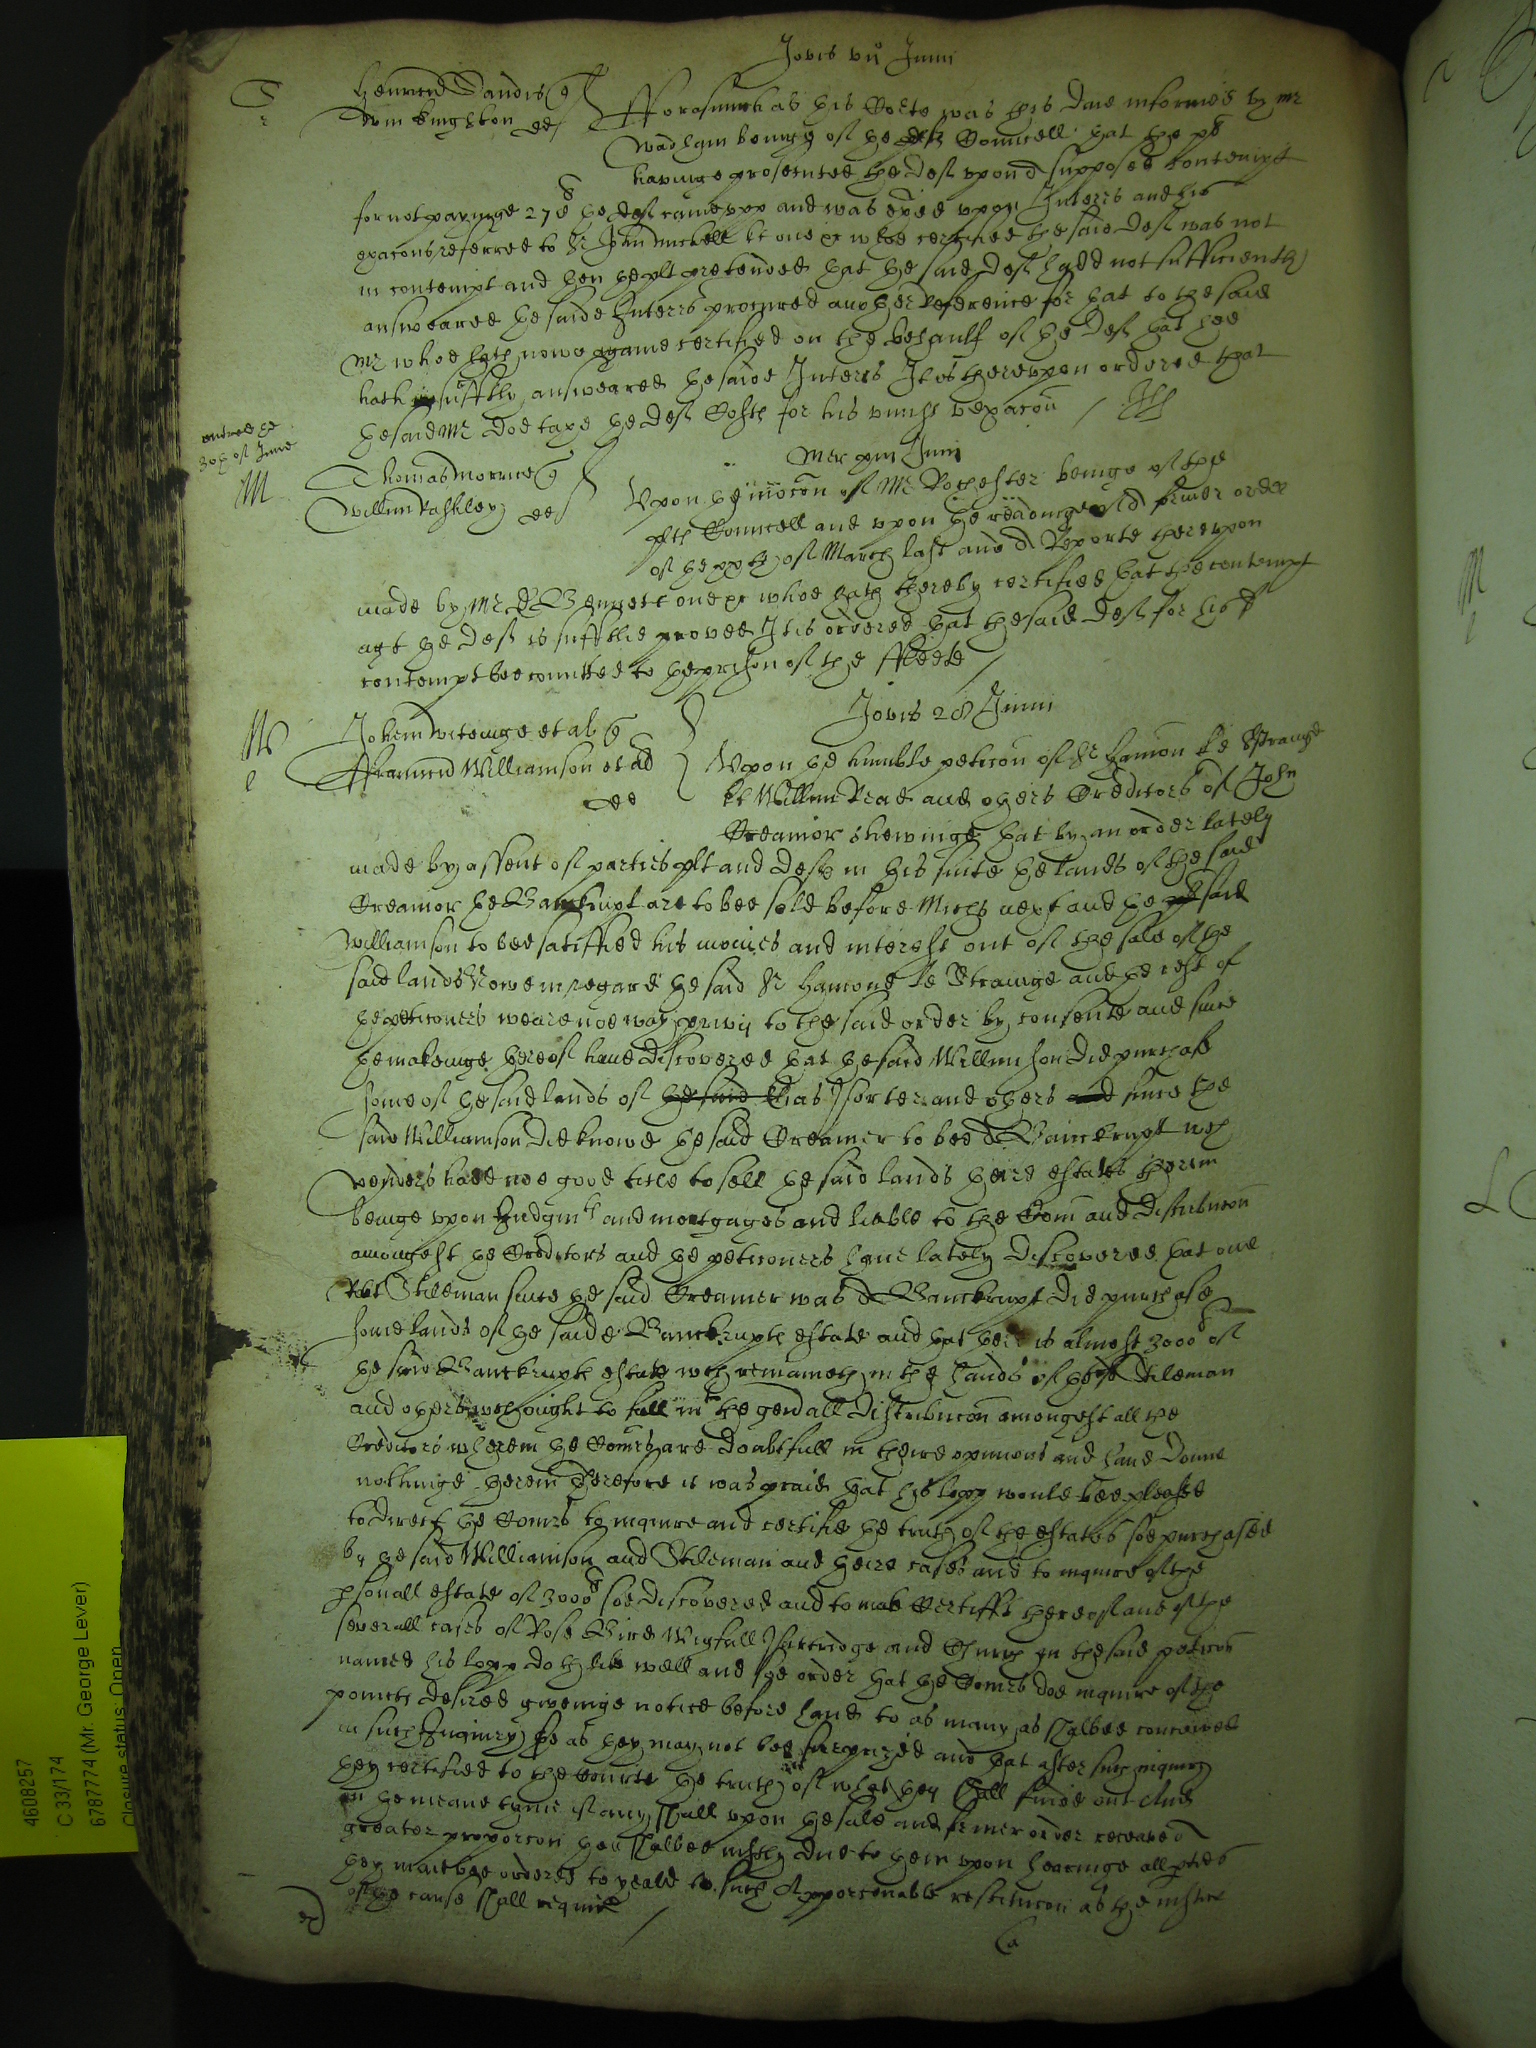 Jovis vii Junii
Henricus Sandis quer
Kingston def
Fforasmuch as this Corte was this daie informed by Mr
Wadham beinge of the defts Councell that the plt
havinge prosecuted the deft upon a supposed contempt
for not payinge 27l the deft came upp and was exed upon Interrs and his
exacons referred to Sr John Michell kt one &c whoe certified the said deft was not
in contempt and then the plt pretended that the said deft hadd not sufficiently
answeared the saide Interrs procured another reference for that to the said
Mr whoe hath nowe againe certified on the behaulf of the deft that hee
hath suffitly answeared the saide Interrs It is thereupon ordered that
the said Mr doe taxe the deft Costs for his uniust vexacon
entred the
30th of June
M
Thomas Morrice quer
Willm Lashley def
Mer xiii Junii
Upon the mocon of Mr Rochester beinge of the
plts Councell and upon the readinge of a former order
of the xxth of March last and a Reporte thereupon
made by Mr Bennett one &c whoe hath thereby certified that the contempt
agt the deft is suffitlie proved It is ordered that the said deft for his sd
contempt bee comitted to the prison of the ffleete
Jovis 28 Junii
Johem et al quer
ffranncu Williamson et al
def
Upon the humble peticon of Sr Hamon Le Straunge
kt Willm and others Creditors of John
Creamor shewinge that by an order lately
made by assent of parties plt and defts in this suite the lands of the said
Creamor the Banckrupt are to bee sold before Michs next and the said
Williamson to bee satisfied his monies and interest out of the sale of the
said lands Nowe in regard the said Sr Hamond Le Straunge and the rest of
the peticoners weare noe way privy to the said order by consente and since
the makeinge thereof have discovered that the said Williamson did purchase
some of the said lands of the said and others and since the
said Williamson did knowe the said Creamer to bee a Banckrupt wch
vendors have noe good title to sell the said lands theire estates therein
beinge upon Judgmts and mortgages and liable to the Com and distribucon
amongest the Creditors and the peticoners have lately discovered that one
Stileman since the said Creamer was a Banckrupt did purchase
some lands of the saide Banckrupts estate and that there is almost 3000l of
the said Banckrupts estate wch remaineth in the hands of the sd Stileman
and others wch ought to fall into the generall distribucon amongest all the
Creditors wherein the Comrs are doubtfull in theire opinions and have donne
nothinge therein Therefore it was praid that his lopp would bee pleased
to direct the Comrs to inquire and certifie the truth of the estates soe purchased
by the said Williamson and Stileman and theire cases and to inquire of the
psonall estate of 3000l soe discovered and to make Certiffs thereof and of the
severall cases of Rose Bird Wigfall and in the said peticon
named his lopp doth like well and soe order that the Comrs doe inquire of the
points desired giveinge notice before hand to as many as shalbee concerned
in such Inquiry soe as they may not bee surprized and that after such inquiry
they certified to the Courte the truth of what they shall finde out And
in the meane tyme if any shall upon the sale and former order receave a
greater proporcon then shalbee iustly due to them upon hearinge all pties
they maie bee ordered to yeald to such a pporconable restitucon as the iustice
of the cause shall require
4608257
C 33/174
6787774 (Mr. George Lever)
Closure status: Open